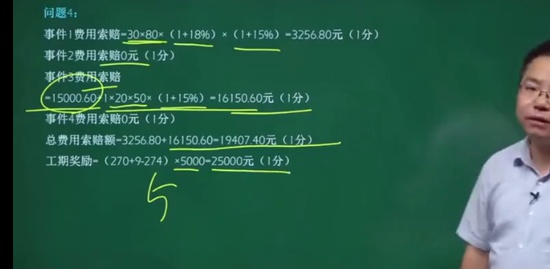 问题4：
事件1费用索赔=30×80×（1+18%）×（1+15%）=3256.80元（1分）
事件2费用索赔0元（1分）
事件3费用索赔
=15000.60+1×20×50×（1+15%）=16150.60元（1分）
事件4费用索赔0元（1分）
总费用索赔额=3256.80+16150.60=19407.40元（1分）
工期奖励=（270+9-274）×5000=25000元（1分）
5